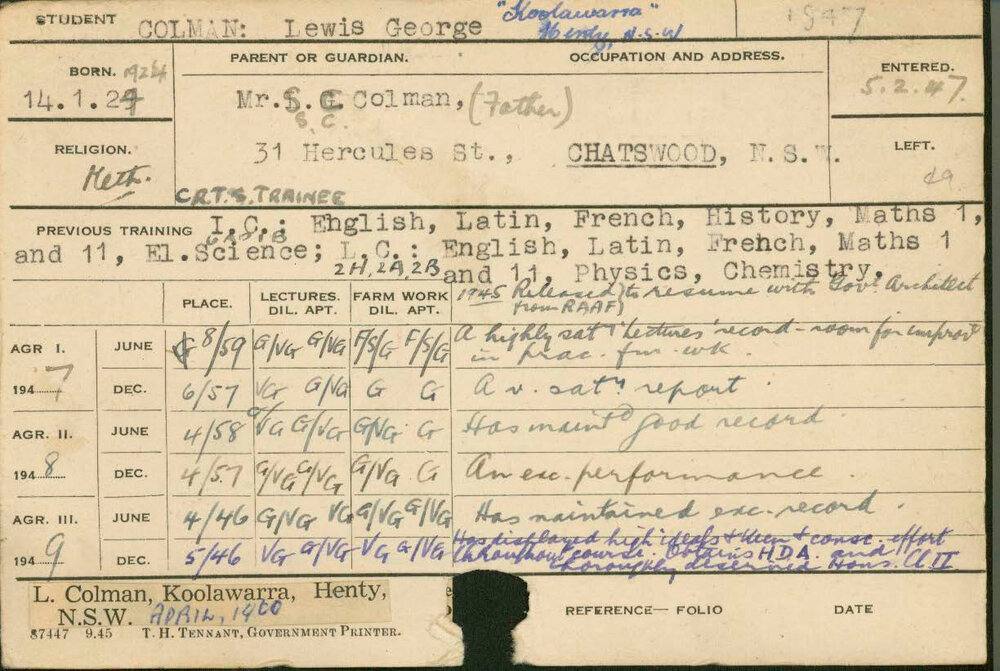 STUDENT COLMAN: Lewis George "Koolawarra" 1947
Henty, N.S.W
BORN. 1924 PARENT OR GUARDIAN. OCCUPATION AND ADDRESS. ENTERED.
14.1.24 Mr. S. G. Colman, (Father) 5.2.47.
S.C.
RELIGION. 31 Hercules St., CHATSWOOD, N.S.W. LEFT.
Meth. 49
C.R.T.S. TRAINEE
PREVIOUS TRAINING I.C.: English, Latin, French, History, Maths 1,
and 11, El.Science; L.C.: English, Latin, French, Maths 1
6A 1B
2H, 2A, 2B and 11, Physics, Chemistry.
1945 Released to resume with Govt Architect
from RAAF
PLACE. LECTURES. FARM WORK
DIL. APT. DIL. APT.
AGR I. JUNE 8/59 G/VG G/VG F/S/G F/S/G A highly sat 'Lectures' record - room for improvt
in prac. fm. wk.
1947 DEC. 6/57 VG G/VG G G A v. saty report.
AGR. II. JUNE 4/58 VG G/VG G/VG G Has maintd good record.
1948 DEC. 4/57 G/VG G/VG G/VG G An exc. performance
AGR. III. JUNE 4/46 G/VG VG G/VG G/VG Has maintained exc. record.
1949 DEC. 5/46 VG G/VG VG G/VG Has displayed high ideals & keen & consc. effort
throughout course. Obtains H.D.A. and
thoroughly deserved Hons. Cl II
L. Colman, Koolawarra, Henty,
N.S.W. APRIL, 1960
REFERENCE— FOLIO DATE
87447 9.45 T. H. TENNANT, GOVERNMENT PRINTER.